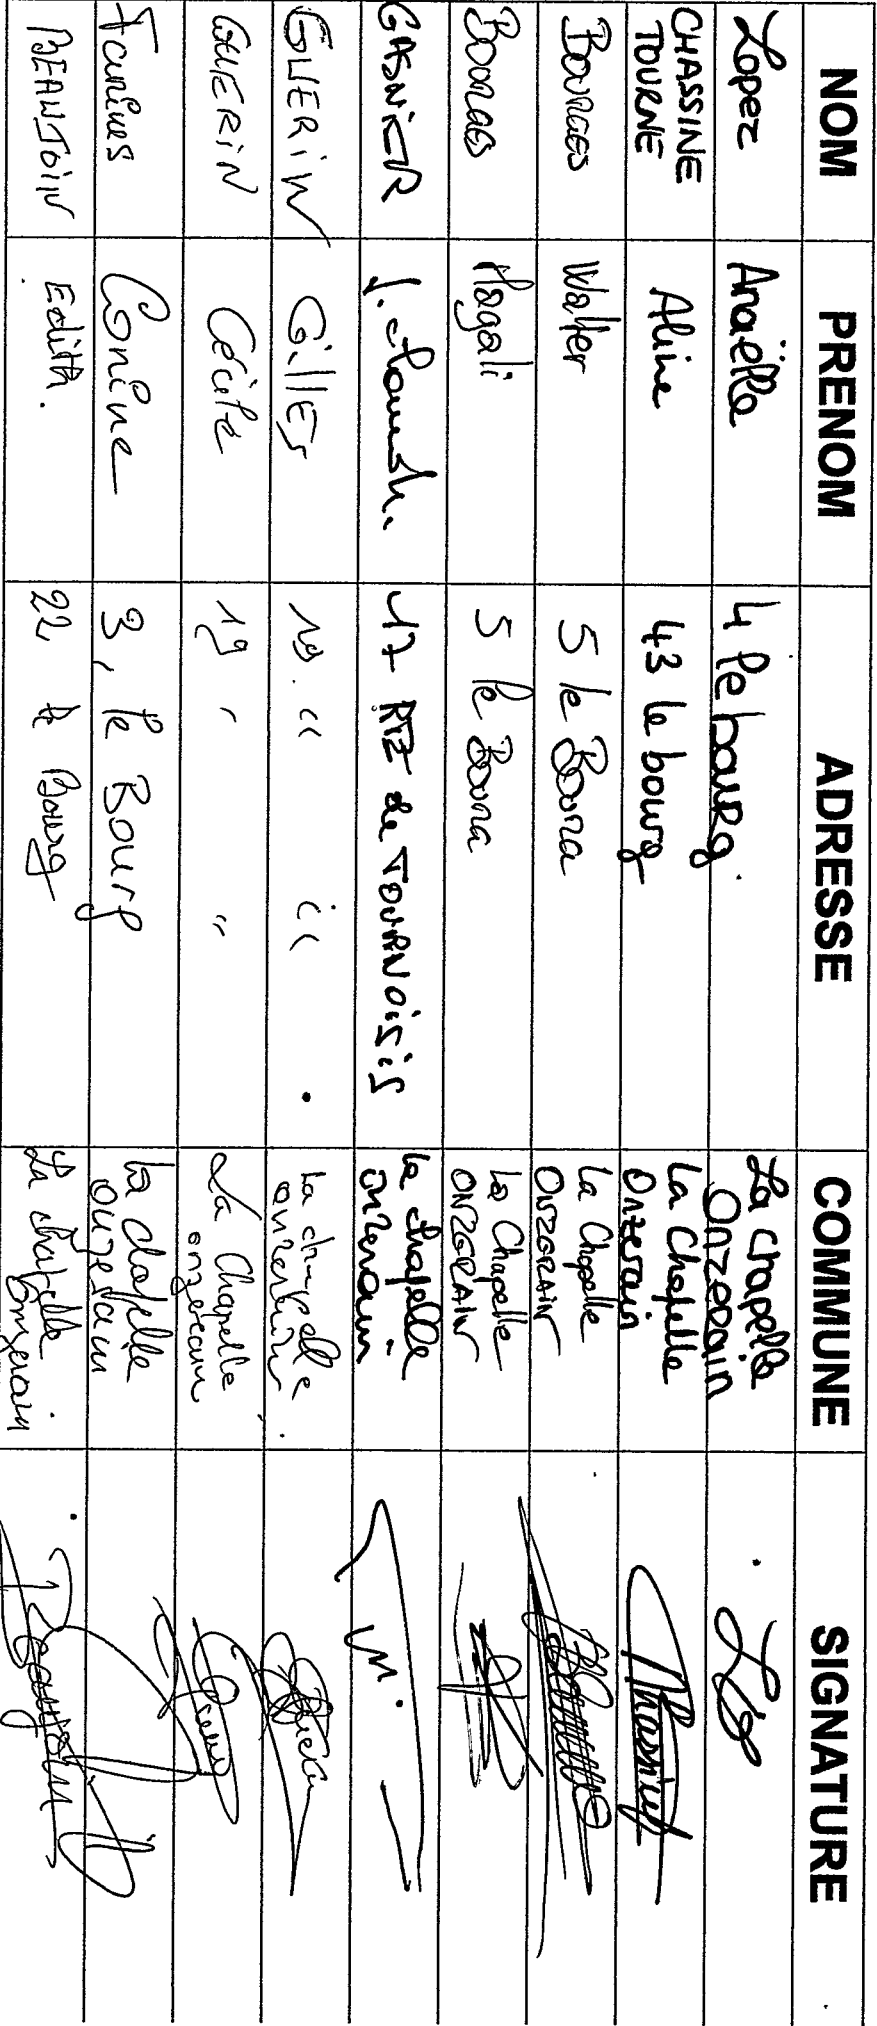 NOM PRENOM ADRESSE COMMUNE SIGNATURE
Lopez Anaëlle 4 le bourg La chapelle
Onzerain
CHASSINE
TOURNE Aline 43 le bourg La Chapelle
Onzerain
BOURGES Walter 5 le Bourg La Chapelle
ONZERAIN
BOURGES Magali 5 le Bourg La Chapelle
ONZERAIN
GASNIER 17 RTE de TOURNOISIS la chapelle
onzerain
GUERIN GILLES 19 " " la chapelle
onzerain
GUERIN Cécile 19 " " La Chapelle
onzerain
Corinne 3, le Bourg la chapelle
onzerain
BEAUJOIN Edith. 22 le Bourg La chapelle
Onzerain